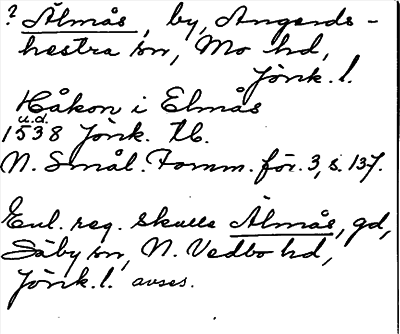 ? Älmås, by, Angerds-
hestra sn, Mo hd,
Jönk. l.
Håkon i Elmås
u.d.
1538 Jönk. tb.
N. Smål. Fornm. för. 3, s. 137.
Enl. reg. skulle Älmås, gd,
Säby sn, N. Vedbo hd,
Jönk. l. avses.